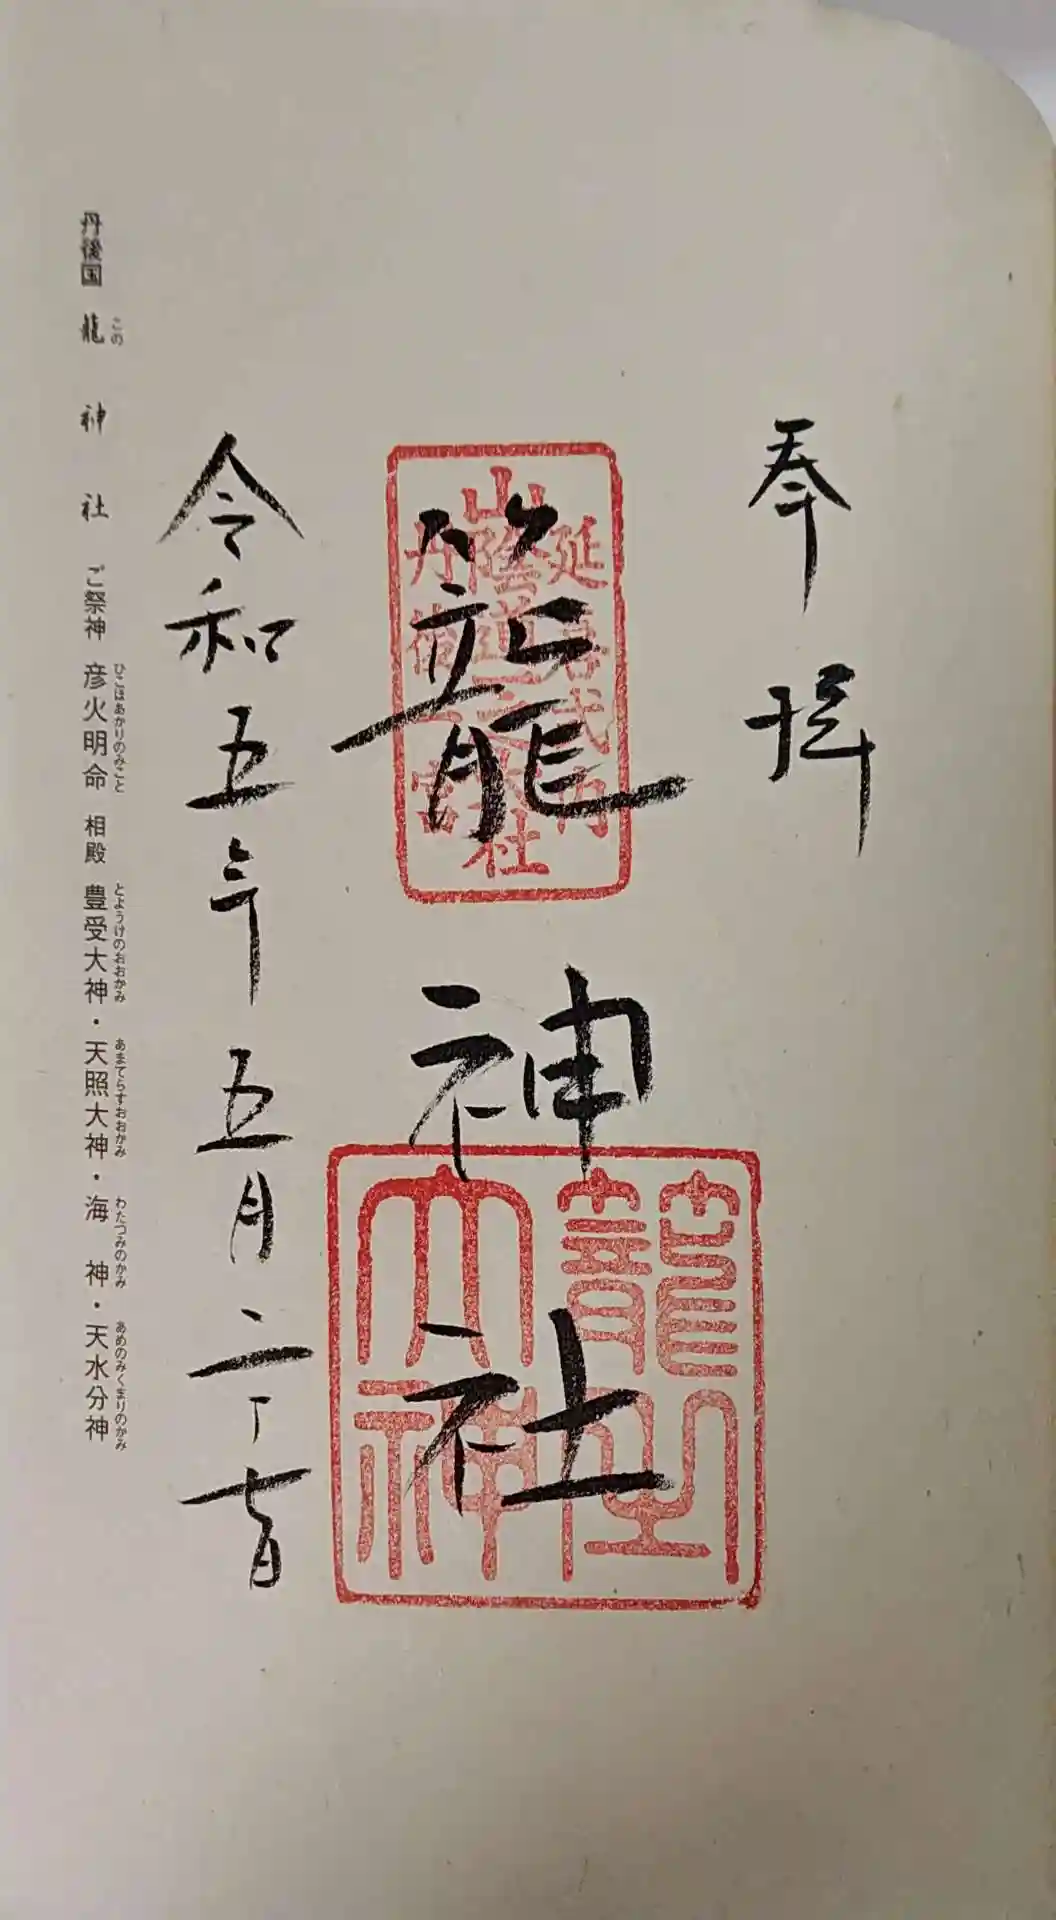 奉拝
延喜式内
山陰道一之大社
丹後一宮
籠神社
大神
令和五年五月二十七日
丹後国 籠神社 ご祭神 彦火明命 相殿 豊受大神・天照大神・海神・天水分神
この ひこほあかりのみこと とようけのおおかみ あまてらすおおかみ わたつみのかみ あめのみくまりのかみ